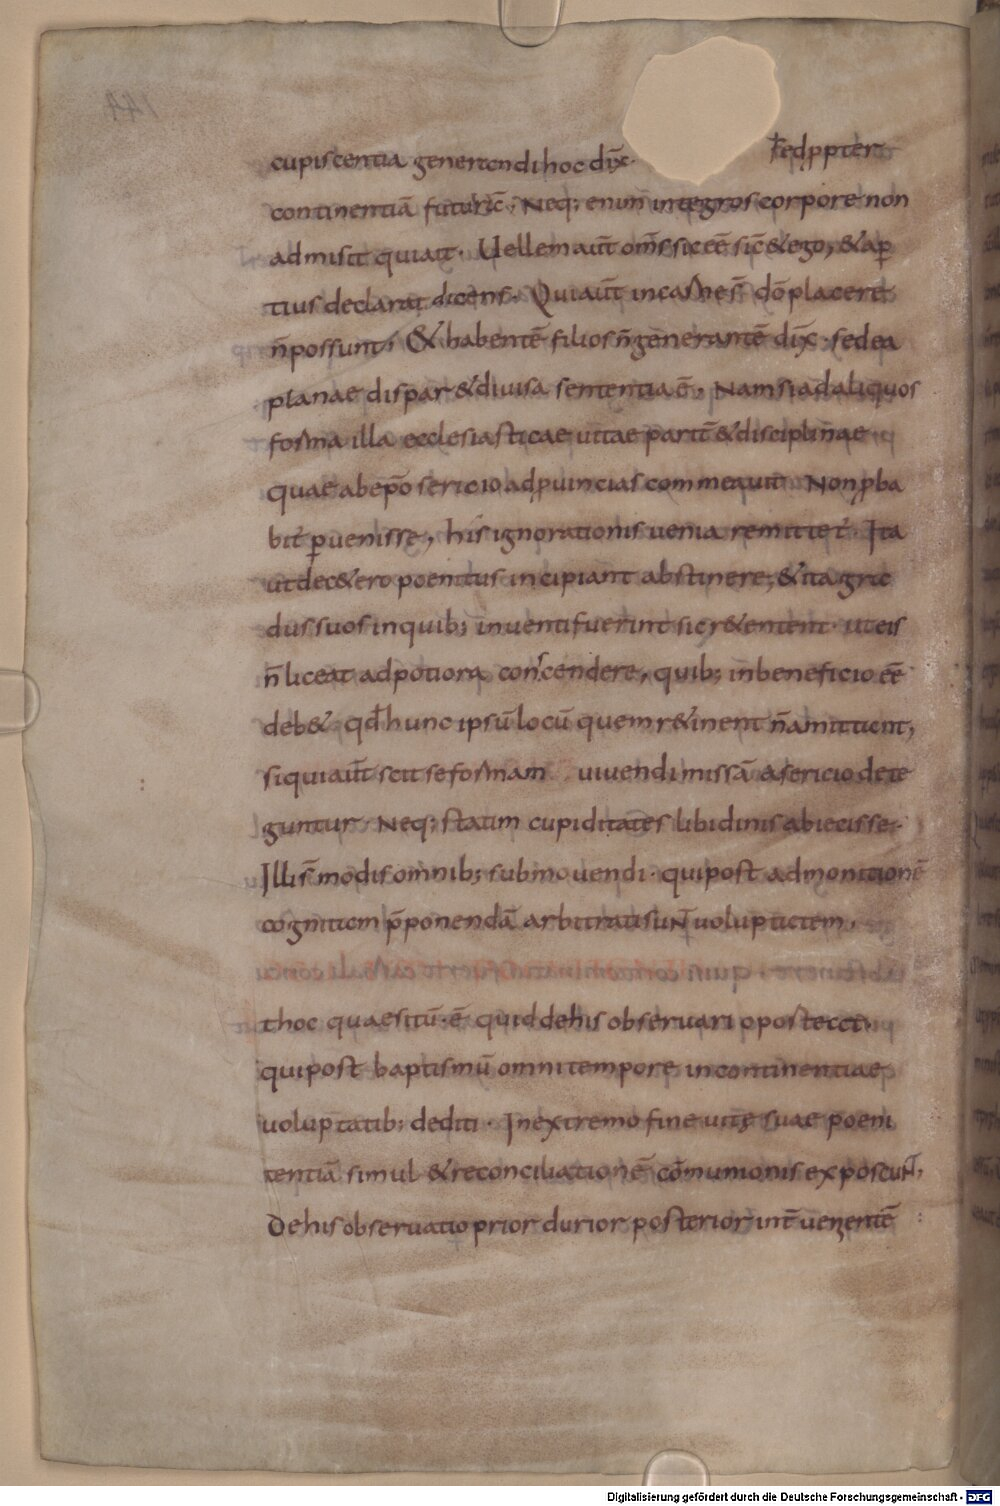 cupiscentia generandi hoc dix̄. sed ꝓpter
continentiā futurā. Neq; enim integros corpore non
admisit quiait. Uellem aut̄ om̄s sic eē sic̄ & ego, & ap
tius declarat dicens. Qui aut̄ in carne s̄ dō placere
n̄ possunt; & habentē filios n̄ generantē dix̄. sed ea
planae dispar & diuisa sententia ē. Nam si ad aliquos
forma illa ecclesiasticae uitae parit̄ & disciplinae
quae ab ep̄o sericio ad ꝓuincias commeauit Non ꝓba
bit̄ ꝑuenisse, his ignorationis uenia remittet̄. Ita
ut de c&ero poenitus incipiant abstinere, & ita gra
dus suos in quib; inuenti fuerint sic r&entent. ut eis
n̄ liceat ad potiora conscendere, quib; in beneficio eē
deb& qđ hunc ipsū locū quem r&inent n̄ amittunt,
si qui aut̄ scit se formam uiuendi missā a sericio dete
guntur Neq; statim cupiditates libidinis abiecisse.
Illi s̄ modis omnib; submouendi. qui post admonitionē
cognitam p̄ponendā arbitrati sunt uoluptatem.
t hoc quaesitū. ē quid de his obseruari oporteat.
qui post baptismū omni tempore incontinentiae
uoluptatib; dediti. In extremo fine uitę suae poeni
tentiā simul & reconciliationē cōmunionis exposcunt;
De his obseruatio prior durior posterior int̄uenientē
Digitalisierung gefördert durch die Deutsche Forschungsgemeinschaft - DFG